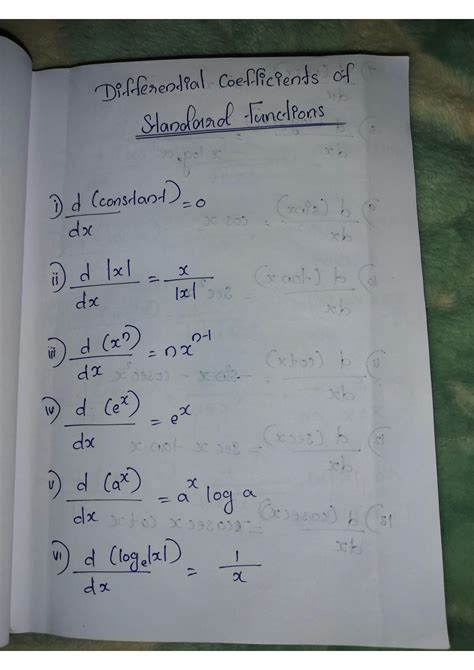 Differential Coefficients of
Standard Functions
i) d (constant)/dx = 0
ii) d |x|/dx = x/|x|
iii) d (xⁿ)/dx = nxⁿ⁻¹
iv) d (eˣ)/dx = eˣ
v) d (aˣ)/dx = aˣ log a
vi) d (logₑ|x|)/dx = 1/x